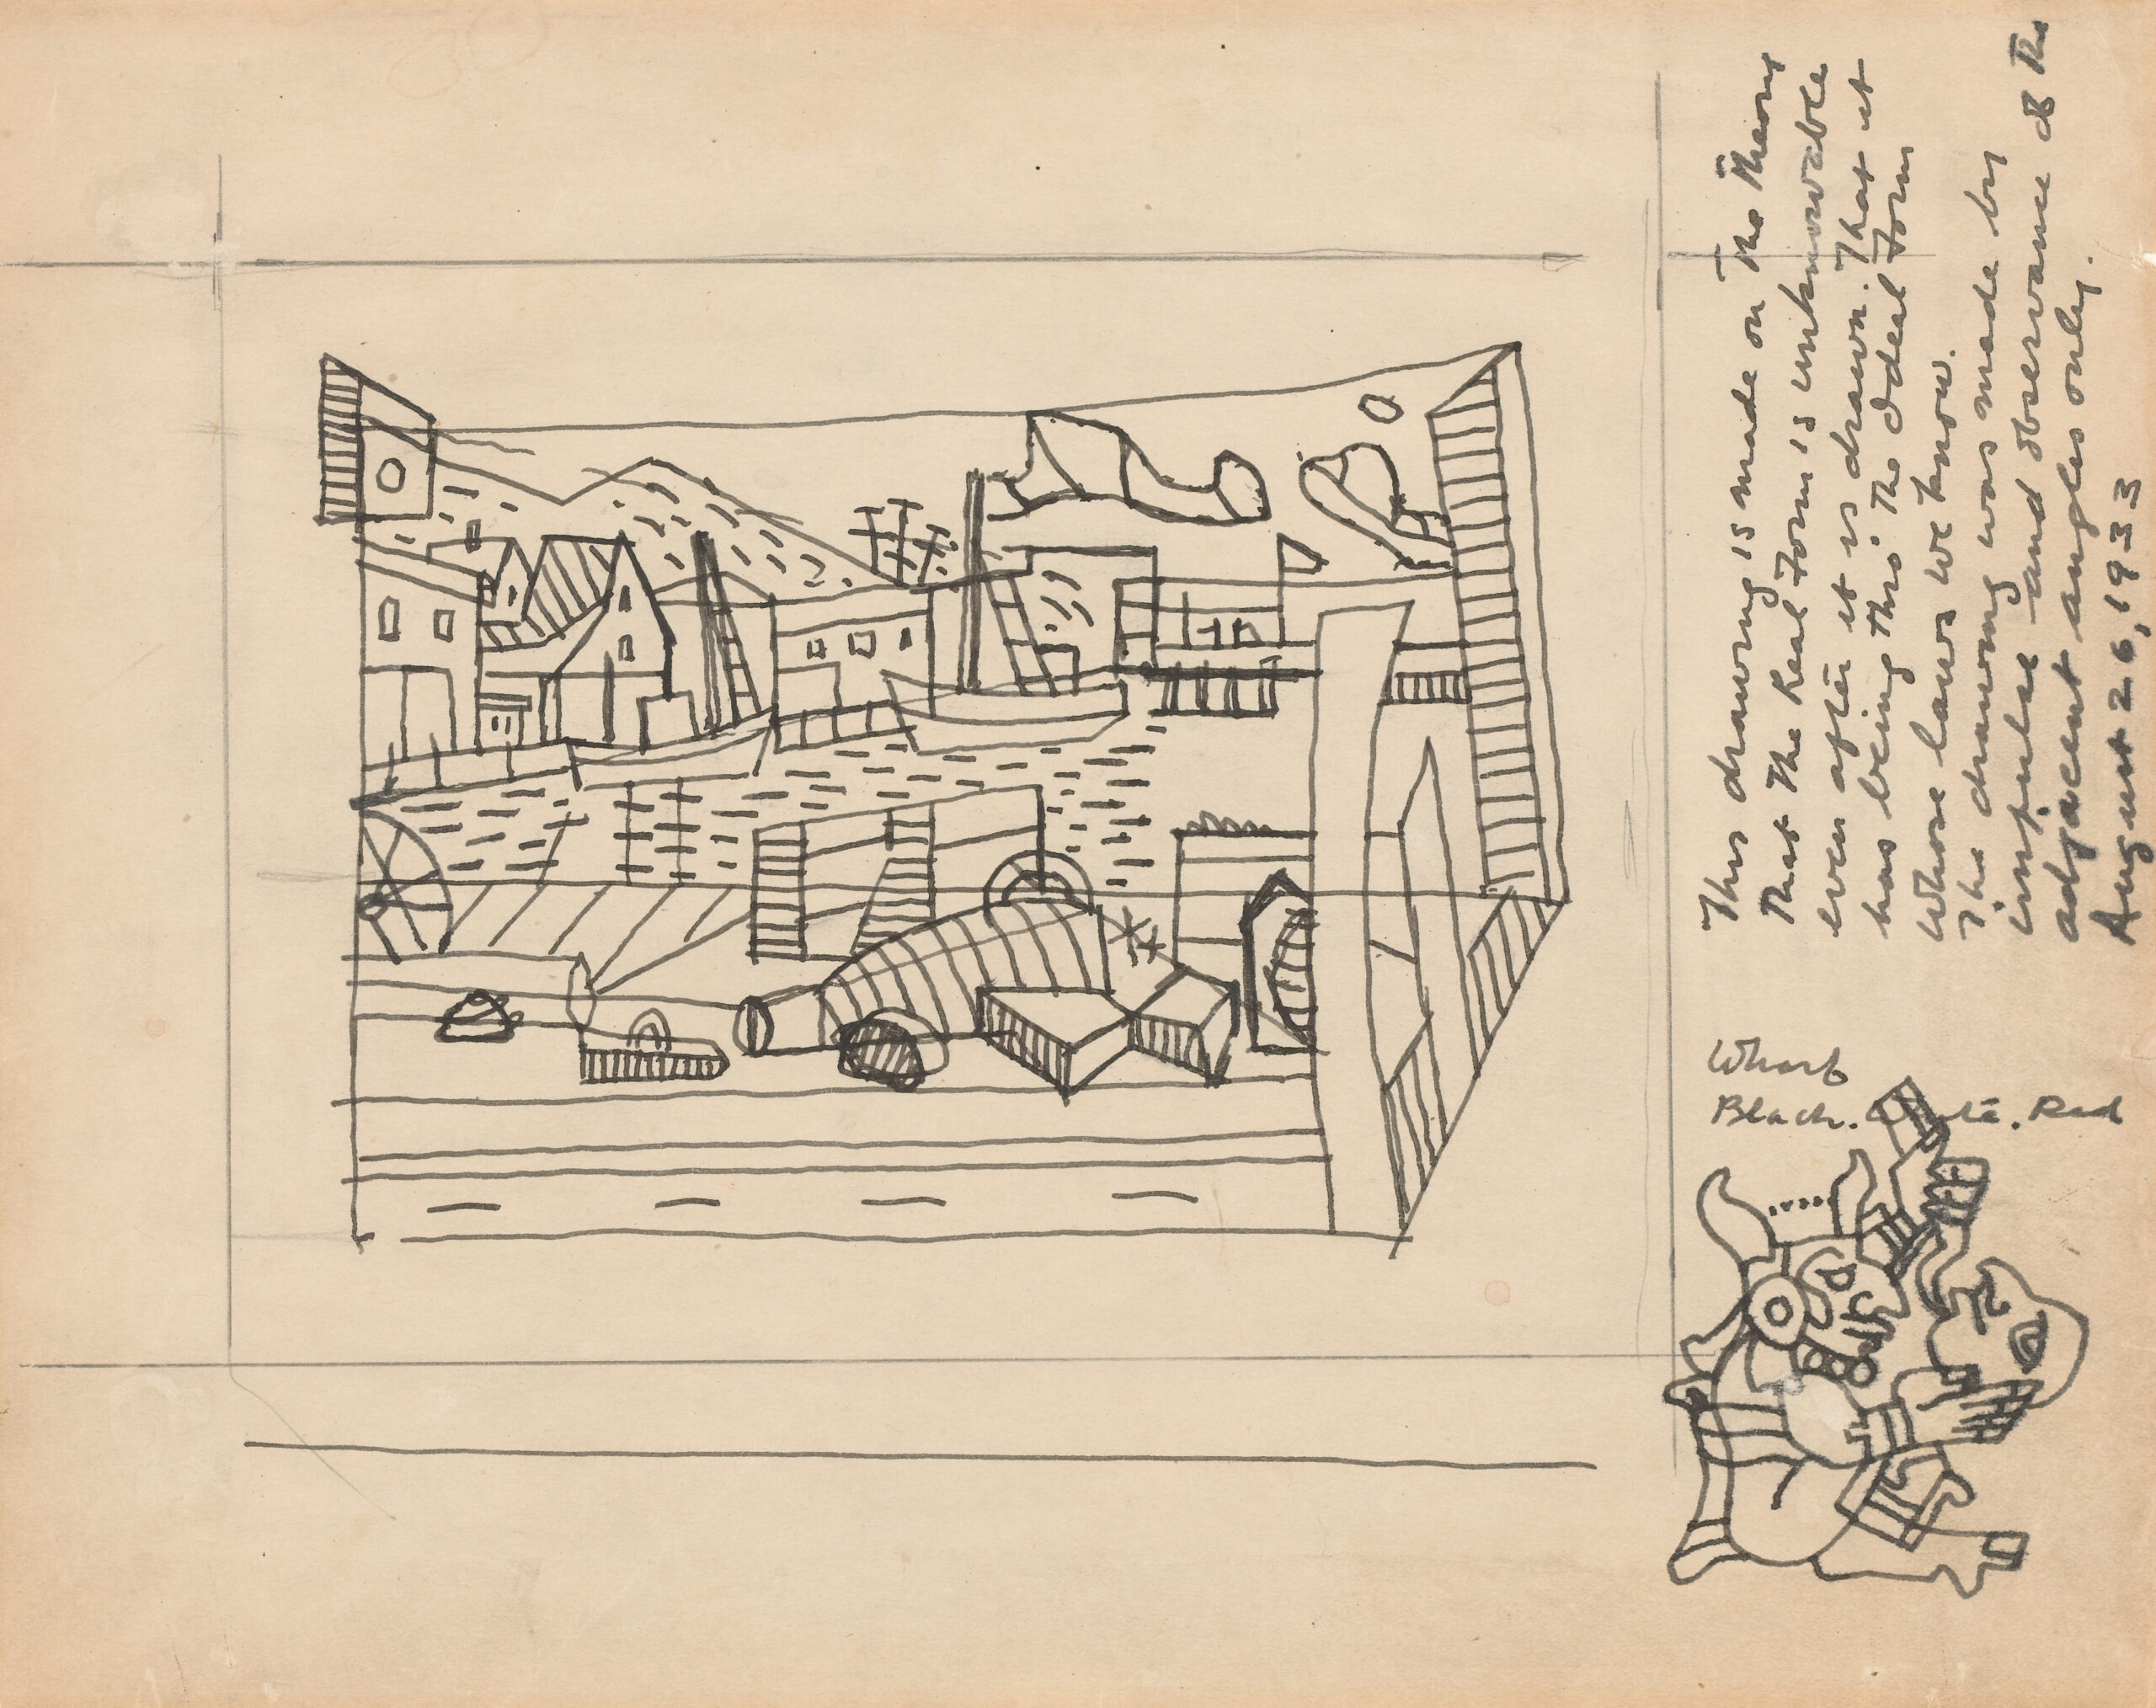 This drawing is made on the theory
that the Real Form is unknowable
even after it is drawn. That it
has being thro' the Ideal Form
whose laws we know.
The drawing was made by
impulse and observance of the
adjacent angles only.
August 26, 1933
Wharf
Black. Red